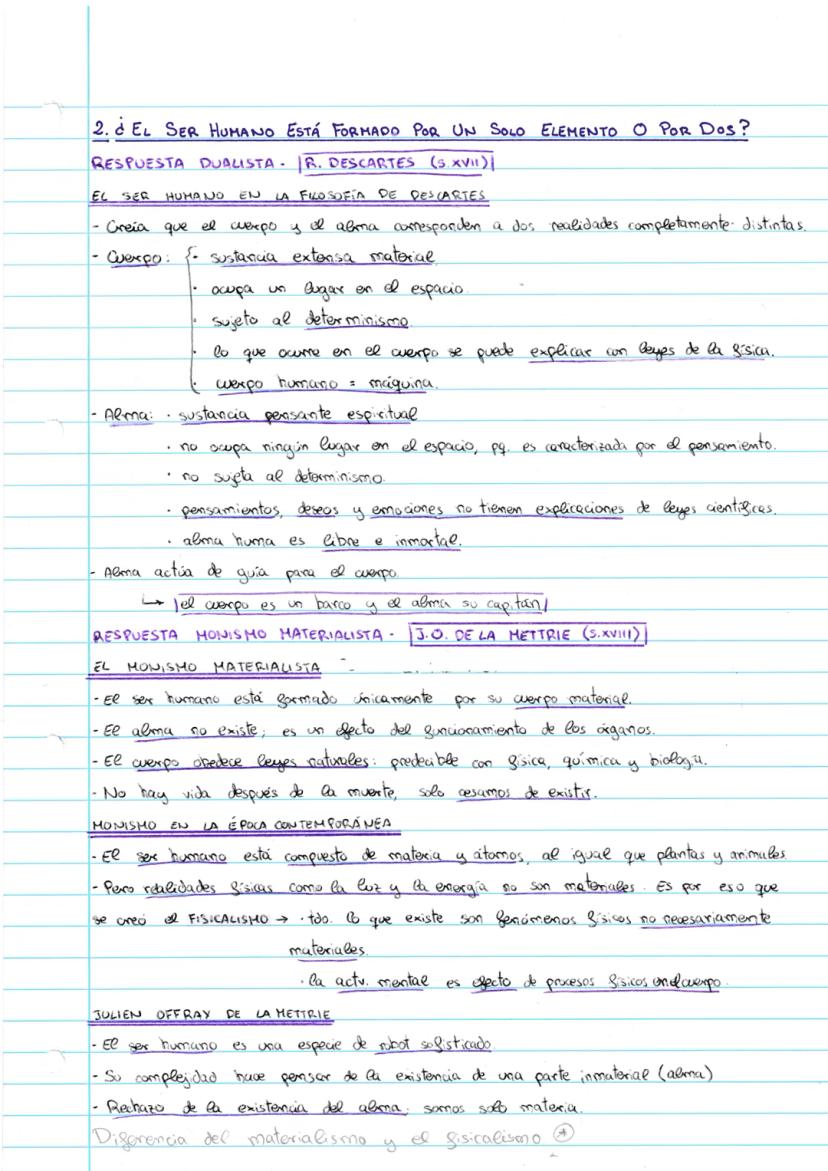 2. ¿ EL SER HUMANO ESTÁ FORMADO POR UN SOLO ELEMENTO O POR DOS?
RESPUESTA DUALISTA - R. DESCARTES (S.XVII)
EL SER HUMANO EN LA FILOSOFÍA DE DESCARTES
- Creía que el cuerpo y el alma corresponden a dos realidades completamente distintas.
- Cuerpo: · sustancia extensa material
· ocupa un lugar en el espacio
· sujeto al determinismo
· lo que ocurre en el cuerpo se puede explicar con leyes de la física.
· cuerpo humano = máquina.
- Alma: · sustancia pensante espiritual
· no ocupa ningún lugar en el espacio, pq. es caracterizada por el pensamiento.
· no sujeta al determinismo.
· pensamientos, deseos y emociones no tienen explicaciones de leyes científicas.
· alma huma es libre e inmortal.
- Alma actúa de guía para el cuerpo
↳ el cuerpo es un barco y el alma su capitán
RESPUESTA MONISMO MATERIALISTA - J.O. DE LA METTRIE (S.XVIII)
EL MONISMO MATERIALISTA
- El ser humano está formado únicamente por su cuerpo material.
- El alma no existe; es un efecto del funcionamiento de los órganos.
- El cuerpo obedece leyes naturales: predecible con física, química y biología.
- No hay vida después de la muerte, solo cesamos de existir.
MONISMO EN LA ÉPOCA CONTEMPORÁNEA
- El ser humano está compuesto de materia y átomos, al igual que plantas y animales
- Pero realidades físicas como la luz y la energía no son materiales. Es por eso que
se creó el FISICALISMO → · tdo. lo que existe son fenómenos físicos no necesariamente
materiales.
· la actv. mental es efecto de procesos físicos en el cuerpo.
JULIEN OFFRAY DE LA METTRIE
- El ser humano es una especie de robot sofisticado
- Su complejidad hace pensar de la existencia de una parte inmaterial (alma)
- Rechazo de la existencia del alma; somos solo materia.
Diferencia del materialismo y el fisicalismo *